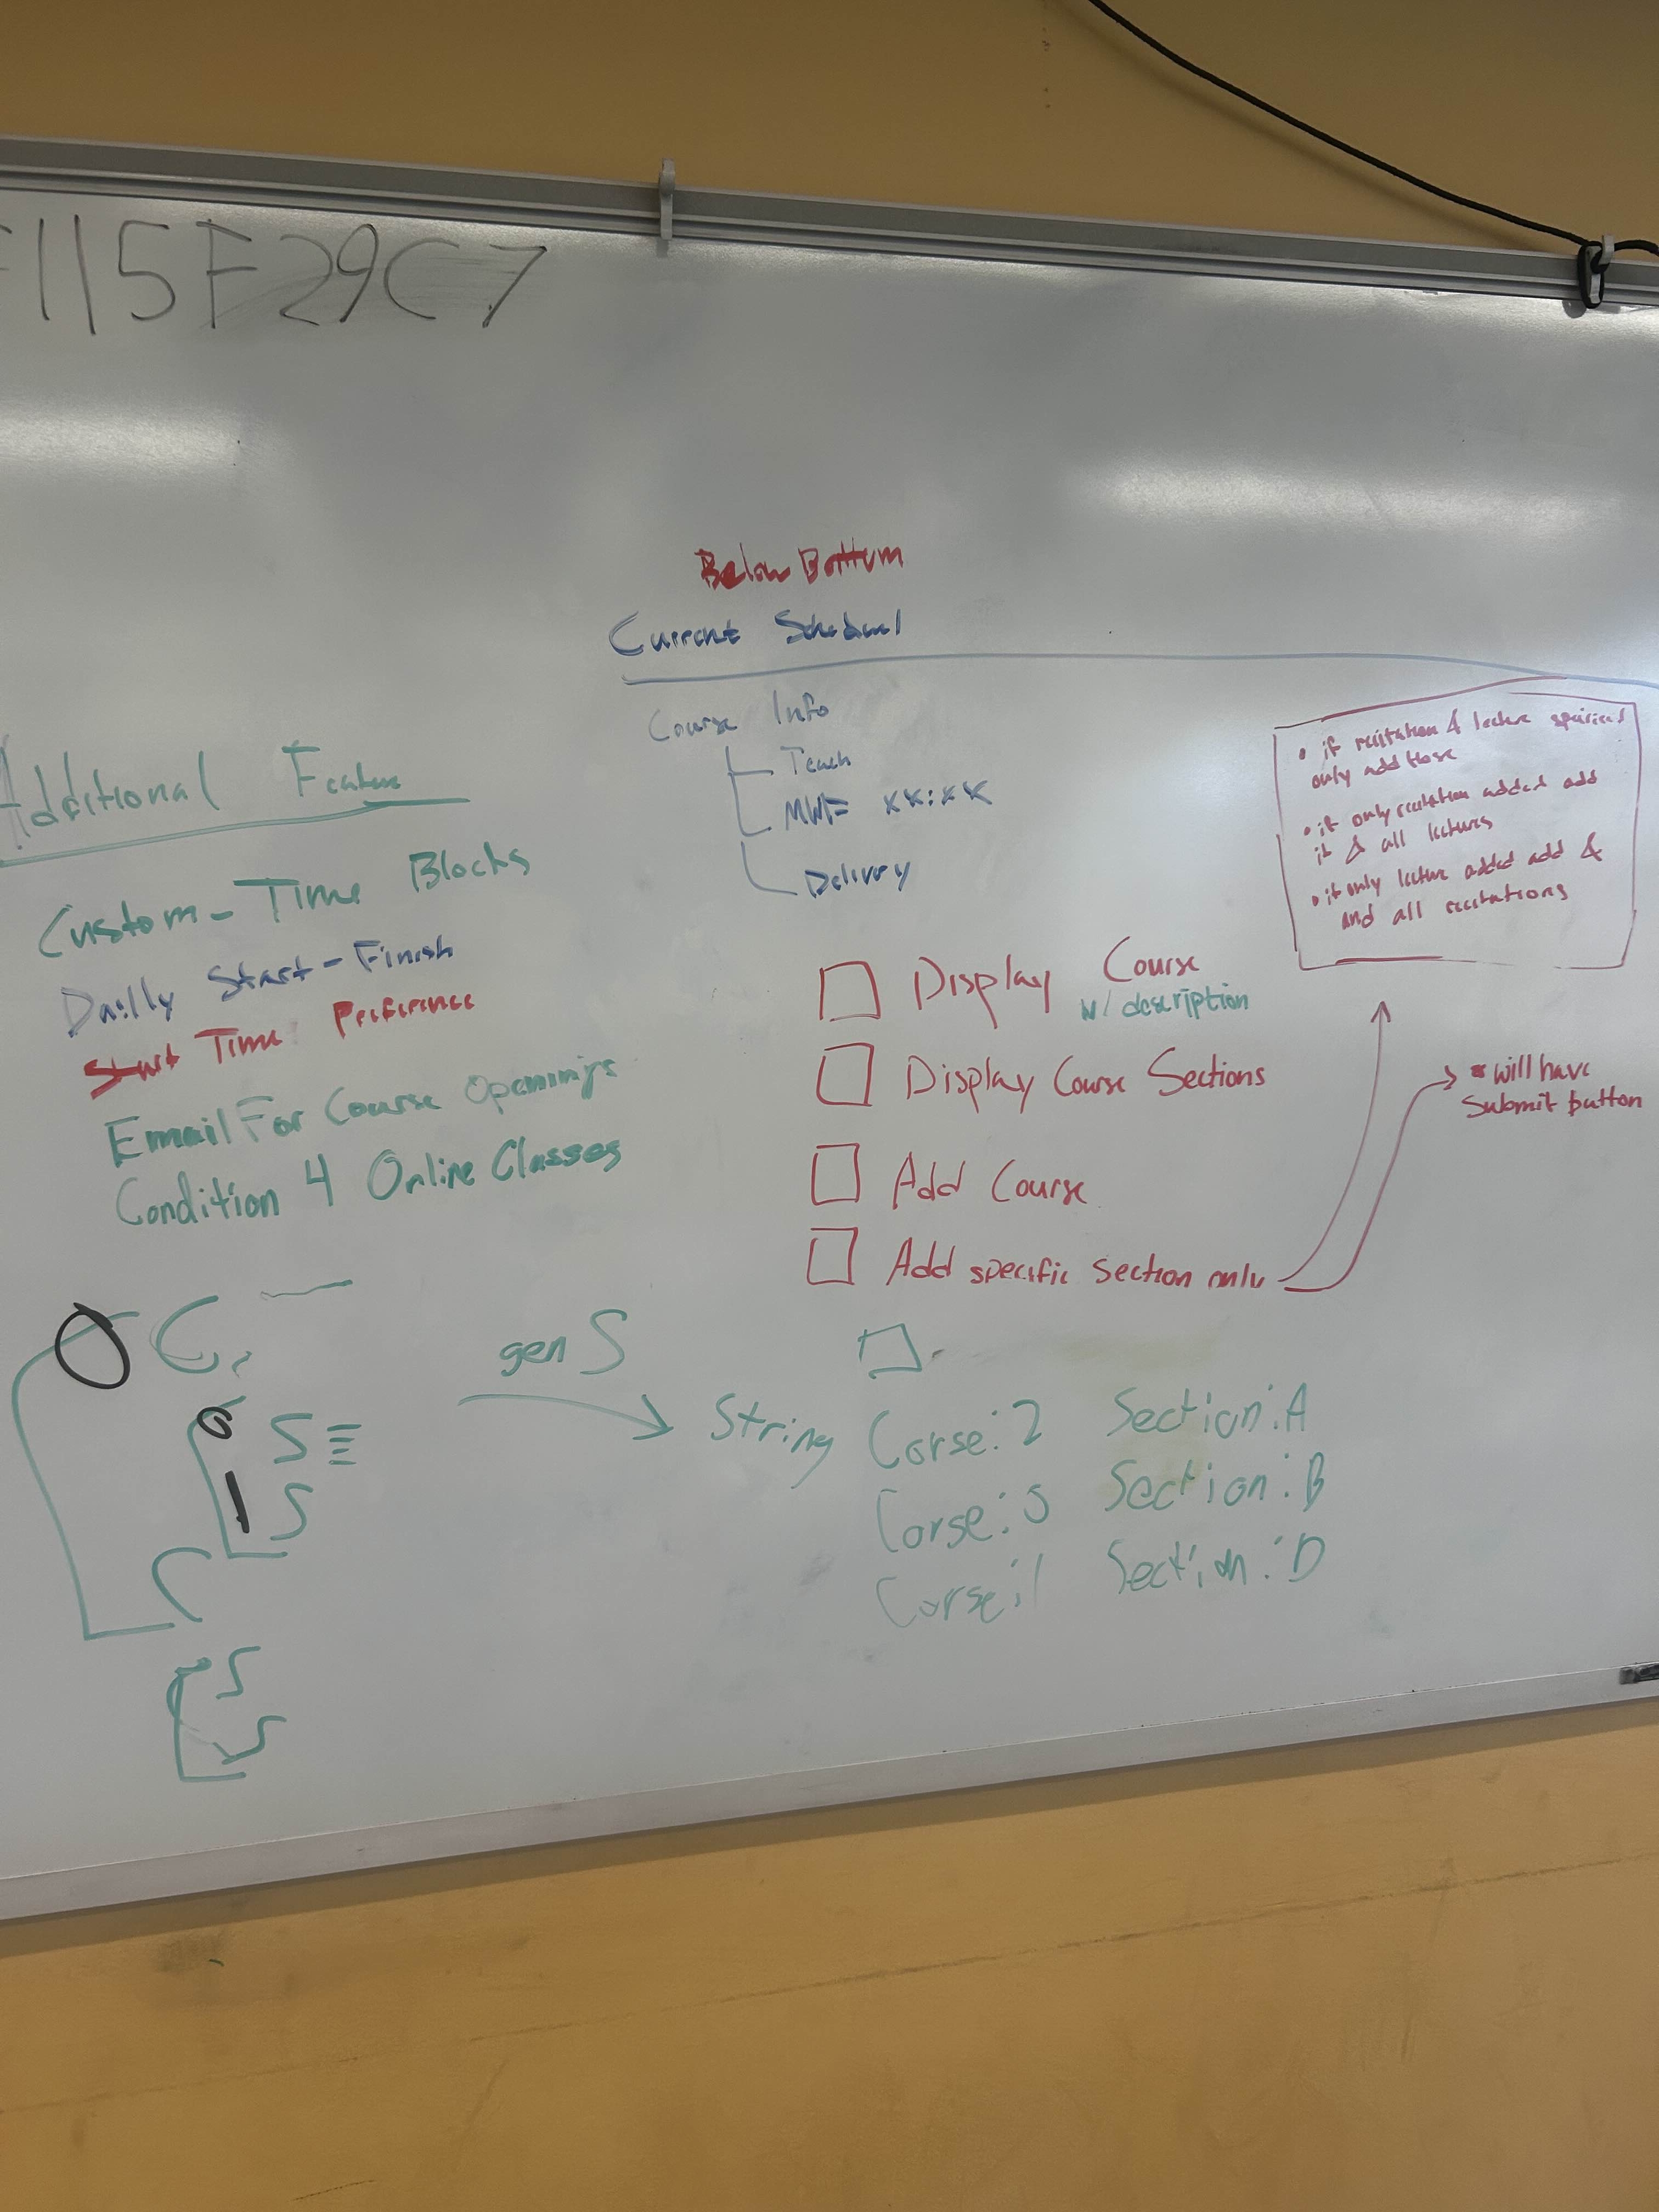 115F29C7
Below Bottom
Current Schedual
Course Info
Teach
MWF xx:xx
Delivery
Additional Feature
Custom-Time Blocks
Daily Start-Finish
Start Time Preference
Email For Course Openings
Condition 4 Online Classes
• if recitation & lecture
only add those
• if only recitation added add
it & all lectures
• if only lecture added add &
and all recitations
Display Course
w/ description
Display Course Sections
Add Course
Add specific section only
will have
submit button
C
0 S
1 S
C
S
S
gen S
String Corse: 2 Section: A
Corse: 5 Section: B
Corse: 1 Section: D